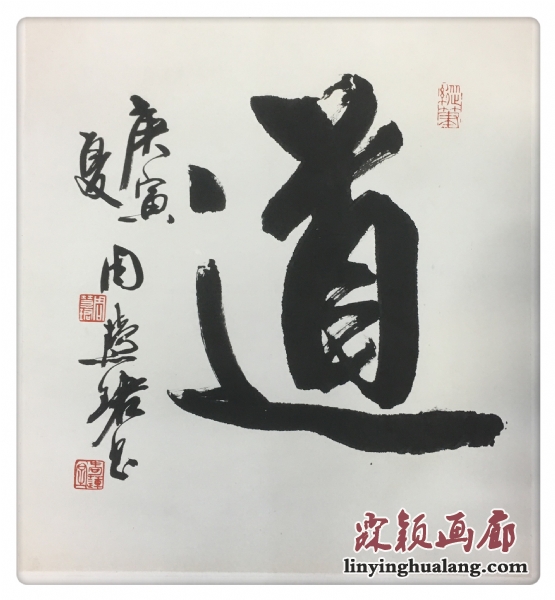 道
庚寅
夏
周慧珺书
霖颖画廊
linyinghualang.com